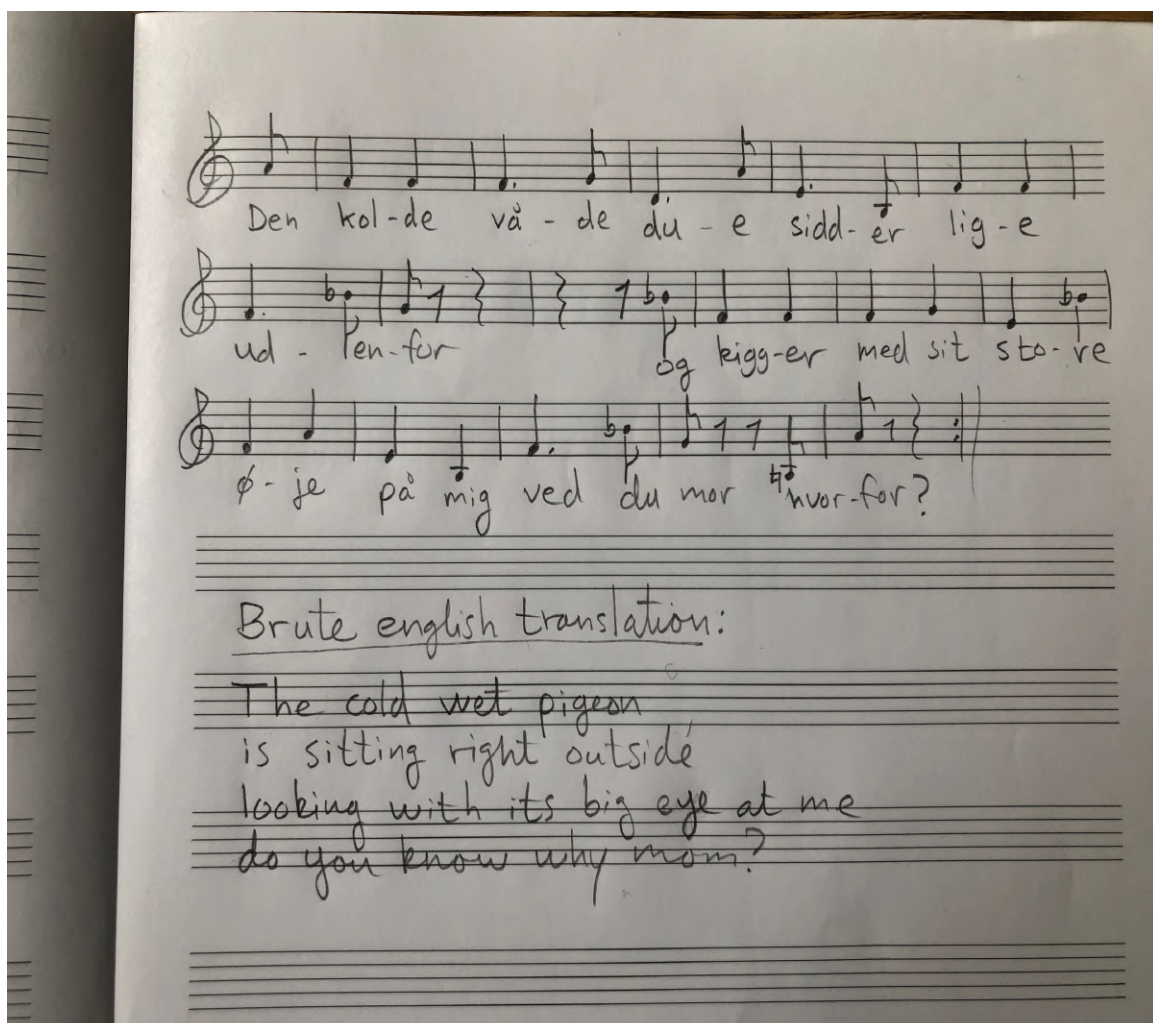 Den kol-de vå-de du-e sidd-er lig-e
ud - ten-for og kigg-er med sit sto-re
ø-je på mig ved du mor hvor-for?
Brute english translation:
The cold wet pigeon
is sitting right outside
looking with its big eye at me
do you know why mom?